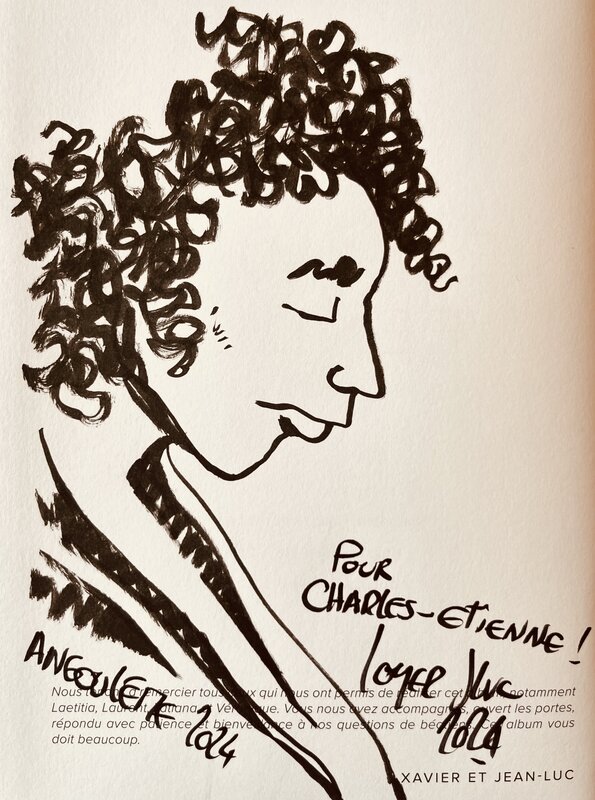 POUR
CHARLES-ETIENNE !
LOYER JLUC
2024
ANGOULEME 2024
Nous tenons à remercier tous ceux qui nous ont permis de réaliser cet album, notamment
Laetitia, Laurent, Tatiana et Véronique. Vous nous avez accompagnés, ouvert les portes,
répondu avec patience et bienveillance à nos questions de béotiens. Cet album vous
doit beaucoup.
XAVIER ET JEAN-LUC